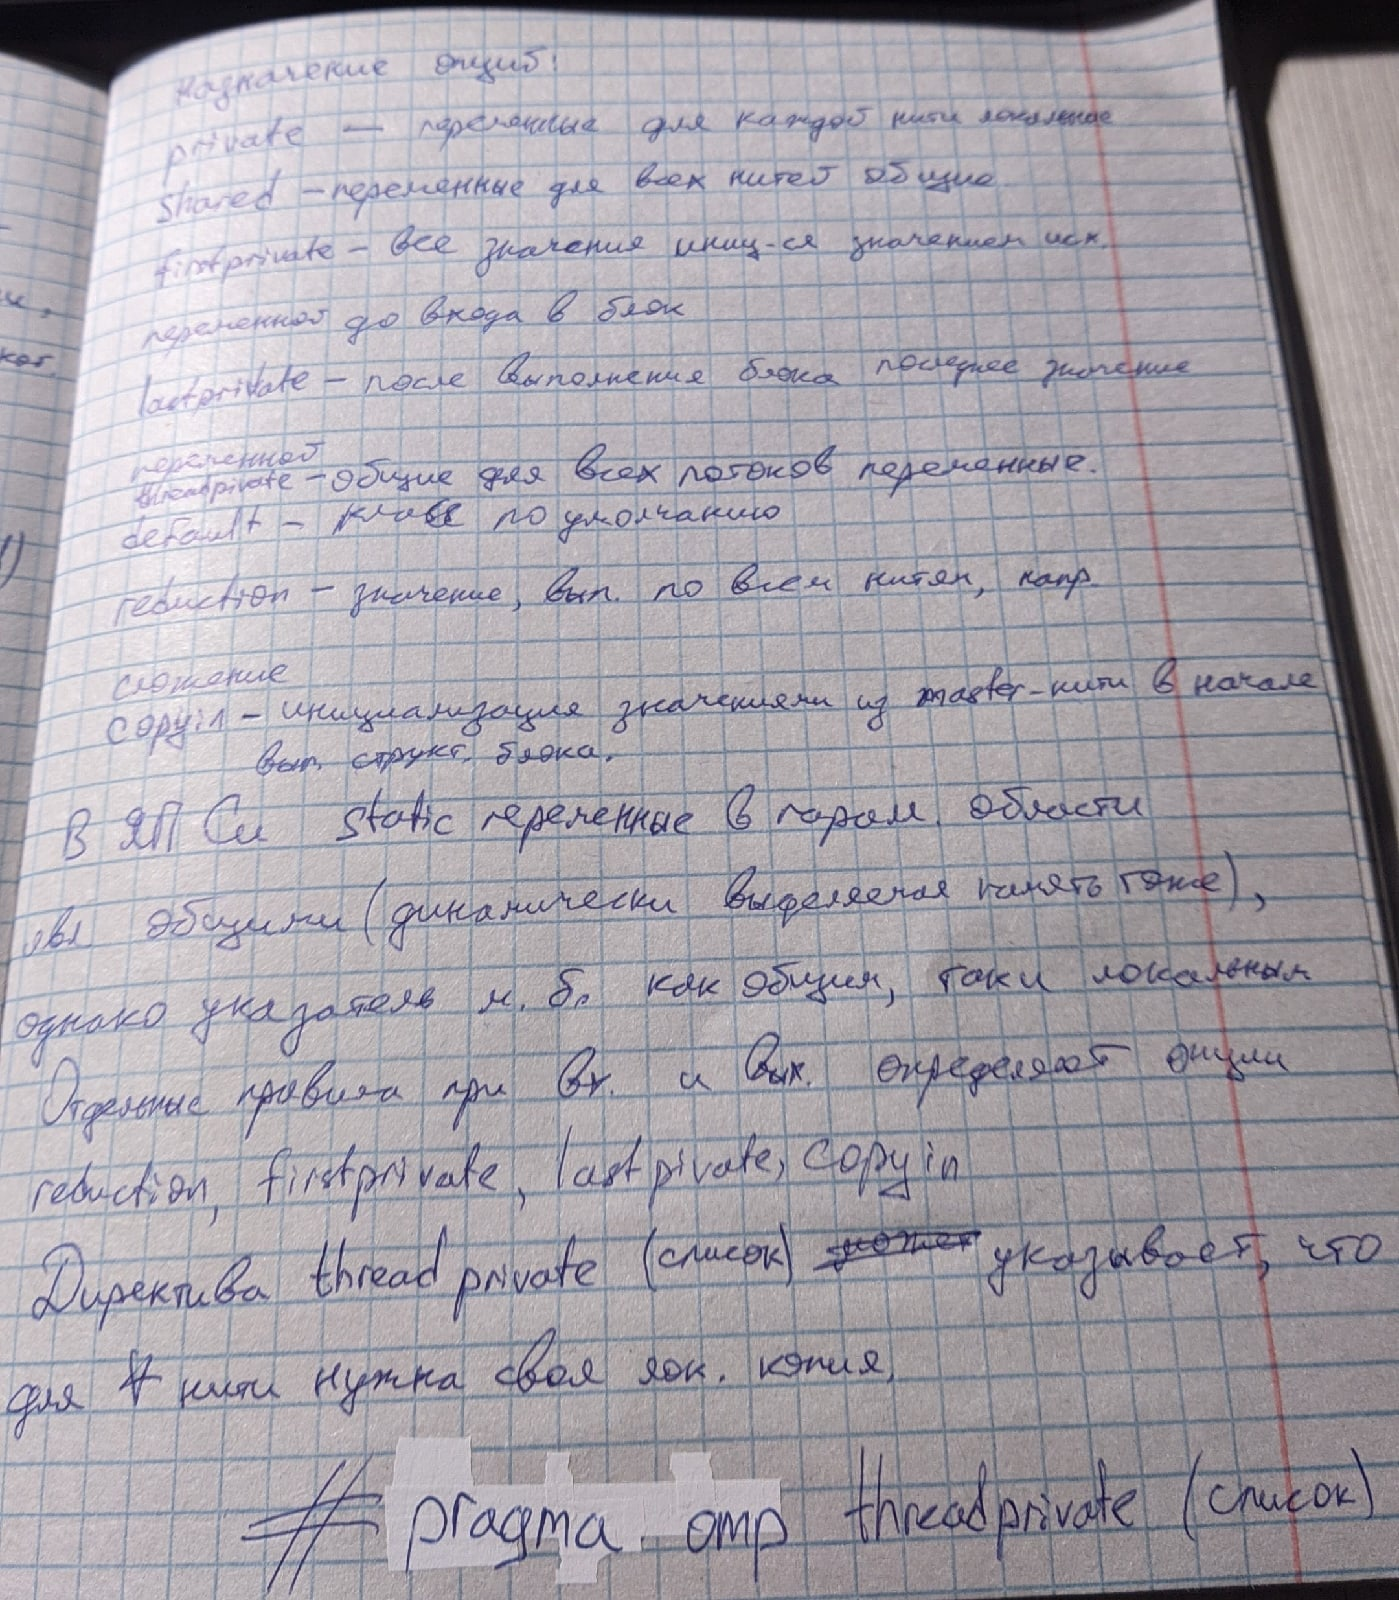 Назначение опций:
private — переменные для каждой нити локальные
shared – переменные для всех нитей общие
firstprivate – все значения иниц-ся значением исх.
переменной до входа в блок
lastprivate – после выполнения блока последнее значение
переменной
threadprivate – общие для всех потоков переменные.
default – класс по умолчанию
reduction – значение, вып. по всем нитям, напр.
сложение
copyin – инициализация значениями из master-нити в начале
вып. структ. блока.
В ЯП Си static переменные в парал. области
явл общими (динамически выделяемая память тоже),
однако указатель м. б. как общим, так и локальным
Отдельные правила при вх. и вых. определяют опции
reduction, firstprivate, lastpivate, copyin
Директива threadprivate (список) указывает, что
для ∀ нити нужна своя лок. копия.
#pragma omp threadprivate (список)